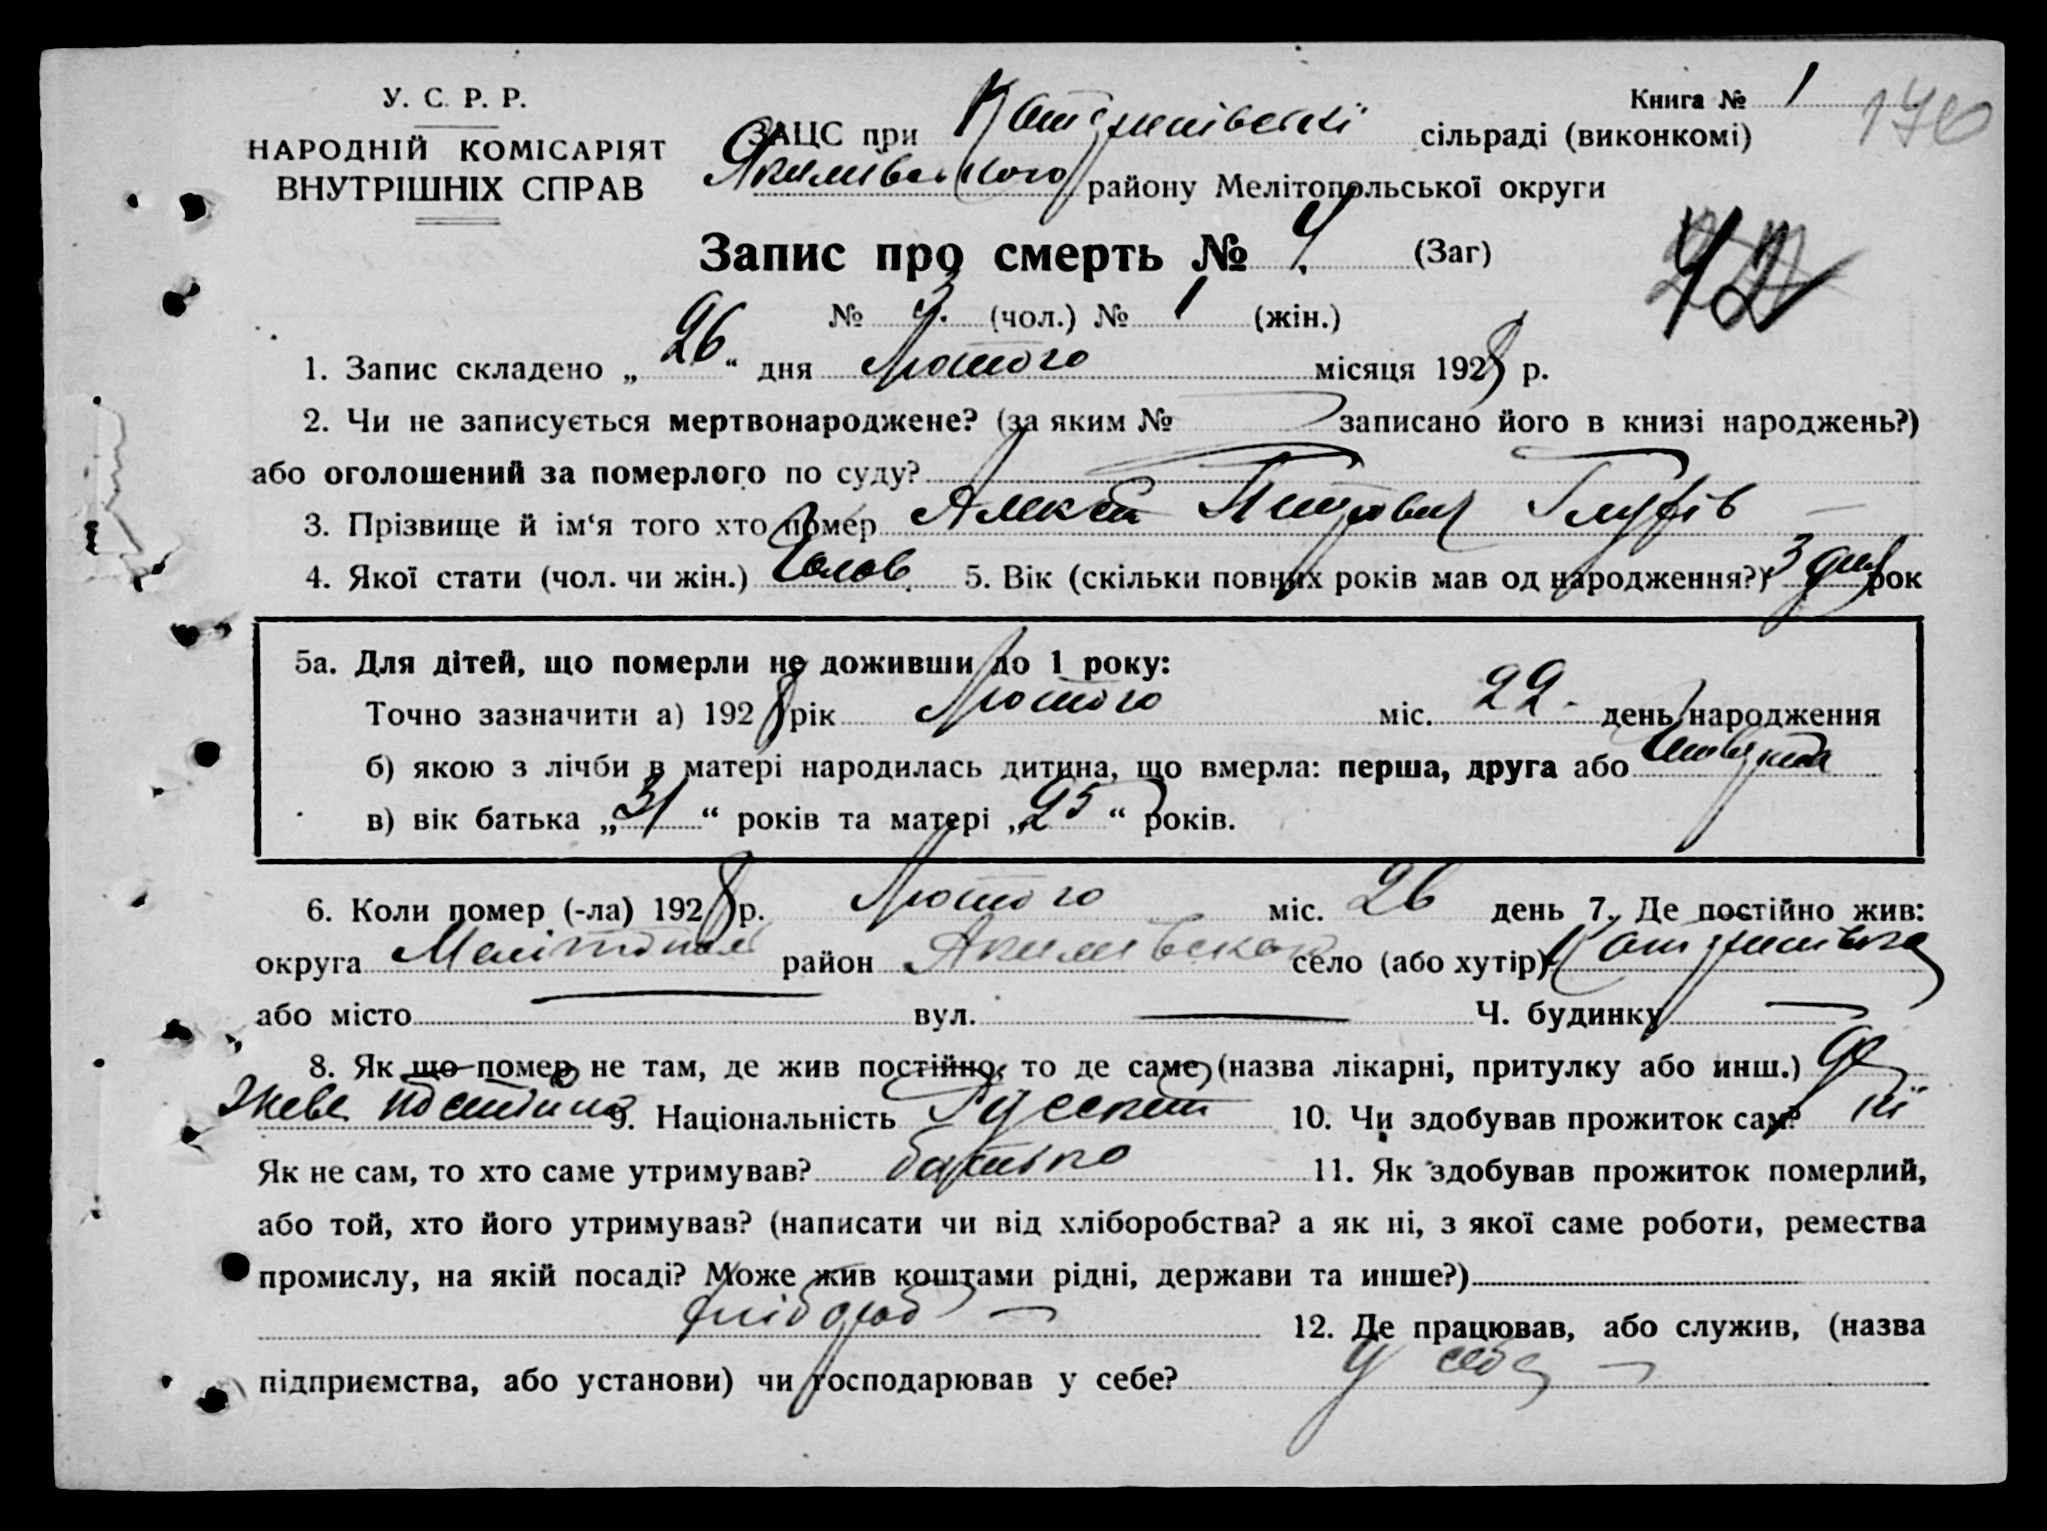 У. С. Р. Р.
НАРОДНІЙ КОМІСАРІЯТ
ВНУТРІШНІХ СПРАВ
Книга № 1
170
ЗАЦС при сільраді (виконкомі)
району Мелітопольської округи
Запис про смерть № 4 (Заг)
42
№ 3 (чол.) № 1 (жін.)
1. Запис складено „ 26 “ дня Лютого місяця 1928 р.
2. Чи не записується мертвонароджене? (за яким № записано його в книзі народжень?)
або оголошений за померлого по суду?
3. Прізвище й ім‘я того хто помер
4. Якої стати (чол. чи жін.) Чолов 5. Вік (скільки повних років мав од народження?) 3 дня рок
5а. Для дітей, що померли не доживши до 1 року:
Точно зазначити а) 1928 рік Лютого міс. 22 день народження
б) якою з лічби в матері народилась дитина, що вмерла: перша, друга або
в) вік батька „ 31 “ років та матері „ 25 “ років.
6. Коли помер (-ла) 1928 р. Лютого міс. 26 день 7. Де постійно жив:
округа район село (або хутір)
або місто — вул. — Ч. будинку —
8. Як що помер не там, де жив постійно, то де саме (назва лікарні, притулку або инш.) де
живе постійно 9. Національність 10. Чи здобував прожиток сам? ні
Як не сам, то хто саме утримував? батько 11. Як здобував прожиток померлий,
або той, хто його утримував? (написати чи від хліборобства? а як ні, з якої саме роботи, ремества
промислу, на якій посаді? Може жив коштами рідні, держави та инше?)
хлібороб — 12. Де працював, або служив, (назва
підприємства, або установи) чи господарював у себе? у себе —